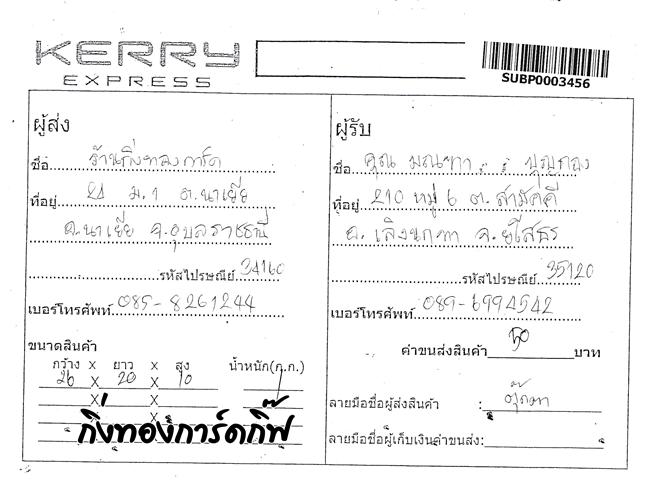 KERRY
EXPRESS
SUBP0003456
ผู้ส่ง
ชื่อ ร้านกิ่งทองการ์ด
ที่อยู่ 21 ม.1 ต.นาเยีย
อ.นาเยีย จ.อุบลราชธานี
รหัสไปรษณีย์ 34160
เบอร์โทรศัพท์ 085-8261244
ขนาดสินค้า
กว้าง x ยาว x สูง น้ำหนัก(ก.ก.)
26 x 20 x 10 1
x x
x
กิ่งทองการ์ดกิ๊ฟ
ผู้รับ
ชื่อ คุณ มณฑา บุญทอง
ที่อยู่ 210 หมู่ 6 ต.สามัคคี
อ.เลิงนกทา จ.ยโสธร
รหัสไปรษณีย์ 35120
เบอร์โทรศัพท์ 089-6994542
ค่าขนส่งสินค้า 50 บาท
ลายมือชื่อผู้ส่งสินค้า : ตุ๊กตา
ลายมือชื่อผู้เก็บเงินค่าขนส่ง: